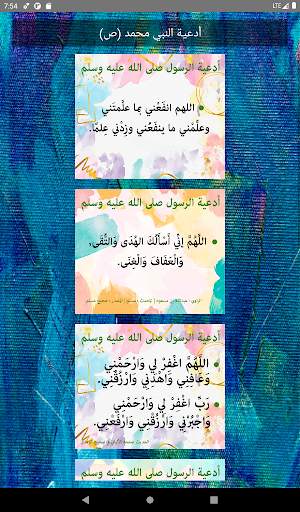 7:54
LTE
أدعية النبي محمد (ص)
أدعية الرسول صلى الله عليه وسلم
اللهم انفَعْني بما علَّمتَني
وعلِّمْني ما ينفَعُني وزِدْني عِلمًا.
أدعية الرسول صلى الله عليه وسلم
اللَّهُمَّ إنِّي أَسْأَلُكَ الهُدَى وَالتُّقَى،
وَالْعَفَافَ وَالْغِنَى.
أدعية الرسول صلى الله عليه وسلم
اللَّهُمَّ اغْفِرْ لِي وَارْحَمْنِي
وَعَافِنِي وَاهْدِنِي وَارْزُقْنِي.
رَبِّ اغْفِرْ لِي وَارْحَمْنِي
وَاجْبُرْنِي وَارْزُقْنِي وَارْفَعْنِي.
أدعية الرسول صلى الله عليه وسلم